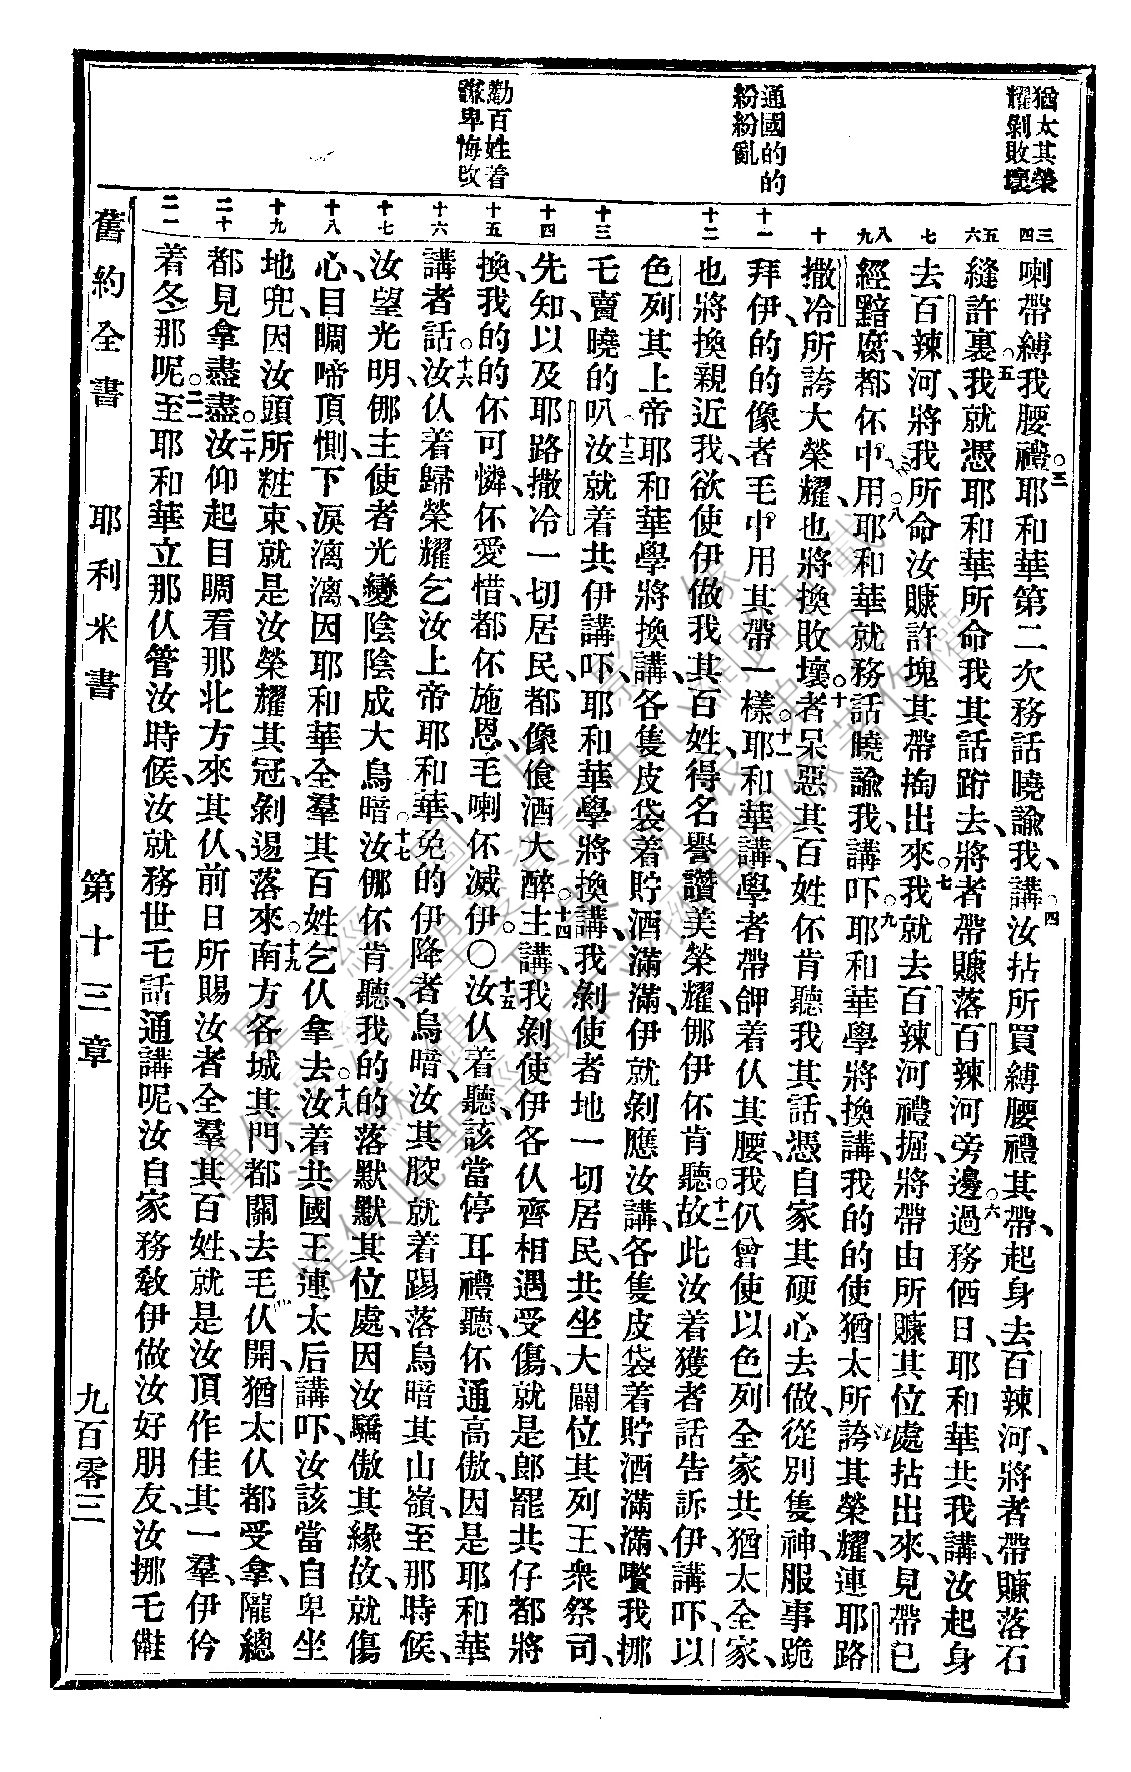 猶太其榮
耀剝敗壞
通國的的
紛紛亂
勸百姓着
謙卑悔改
三
四
五
六
七
八
九
十
十一
十二
十三
十四
十五
十六
十七
十八
十九
二十
二一
喇帶縛我腰禮。三耶和華第二次務話曉諭我、講、四汝拈所買縛腰禮其帶、起身去百辣河、將者帶賺落石
縫許裏。五我就憑耶和華所命我其話跡去、將者帶賺落百辣河旁邊。六過務価日、耶和華共我講、汝起身
去百辣河、將我所命汝賺許塊其帶掏出來。七我就去百辣河禮掘、將帶由所賺其位處拈出來、見帶已
經黯腐、都伓中用。八耶和華就務話曉諭我、講吓、九耶和華學將換講、我的的使猶太所誇其榮耀、連耶路
撒冷所誇大榮耀、也將換敗壞。十者呆惡其百姓伓肯聽我其話、憑自家其硬心去做、從別隻神、服事跪
拜伊的的像者乇中用其帶一樣。十一耶和華講、學者帶䬯着仈其腰、我仈曾使以色列全家共猶太全家、
也將換親近我、欲使伊做我其百姓、得名譽讚美榮耀、㑚伊伓肯聽。十二故此汝着獲者話告訴伊、講吓、以
色列其上帝耶和華學將換講、各隻皮袋着貯酒滿滿、伊就剝應汝講、各隻皮袋着貯酒滿滿、嘐我挪
乇賣曉的叭、十三汝就着共伊講吓、耶和華學將換講、我剝使者地一切居民、共坐大闢位其列王、衆祭司、
先知、以及耶路撒冷一切居民、都像飡酒大醉。十四主講、我剝使伊各仈齊相遇受傷、就是郎罷共仔都將
換、我的的伓可憐、伓愛惜、都伓施恩、乇喇伓滅伊。○十五汝仈着聽、該當停耳禮聽、伓通高傲、因是耶和華
講者話。十六汝仈着歸榮耀乞汝上帝耶和華、免的伊降者烏暗、汝其骹就着踢落烏暗其山嶺、至那時候、
汝望光明、㑚主使者光變陰陰成大烏暗。十七汝㑚伓肯聽、我的的落默默其位處、因汝驕傲其緣故、就傷
心、目睭啼頂惻、下淚漓漓、因耶和華全羣其百姓、乞仈拿去。十八汝着共國王連太后講吓、汝該當自卑坐
地兜、因汝頭所粧束、就是汝榮耀其冠、剝逿落來。十九南方各城其門、都關去乇仈開、猶太仈都受拿、隴總
都見拿盡盡。二十汝仰起目睭看那北方來其仈、前日所賜汝者全羣其百姓、就是汝頂作佳其一羣、伊伶
着冬那呢。二一至耶和華立那仈管汝時候、汝就務世乇話通講呢、汝自家務敎伊做汝好朋友、汝挪乇㑽
舊約全書
耶利米書
第十三章
九百零三